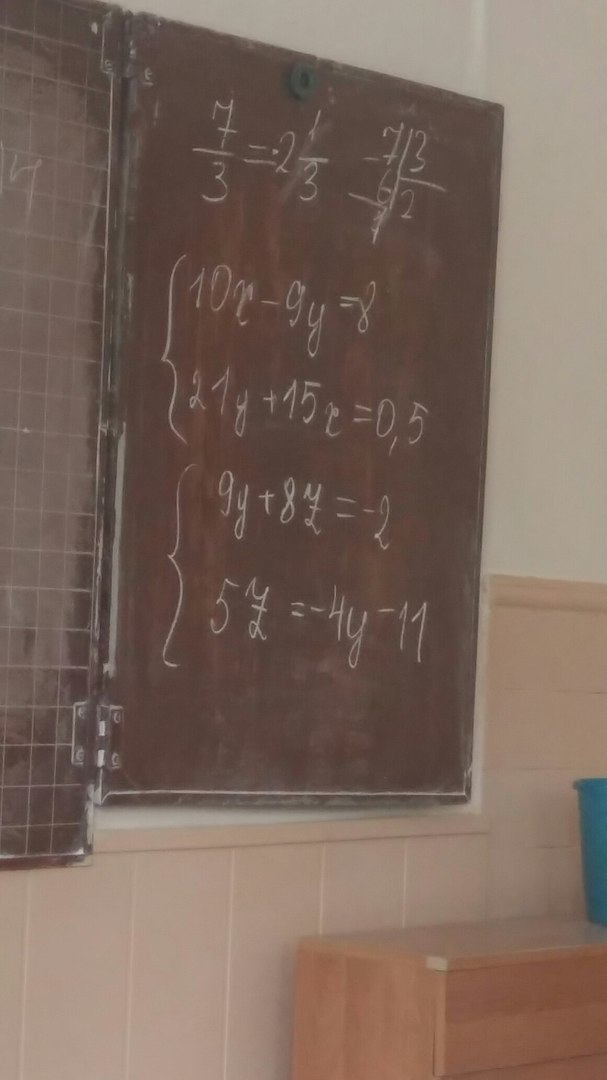 7/3 = 2 1/3
7|3
-6|2
1
{10x - 9y = 8
21y + 15x = 0,5
{9y + 8z = -2
5z = -4y - 11